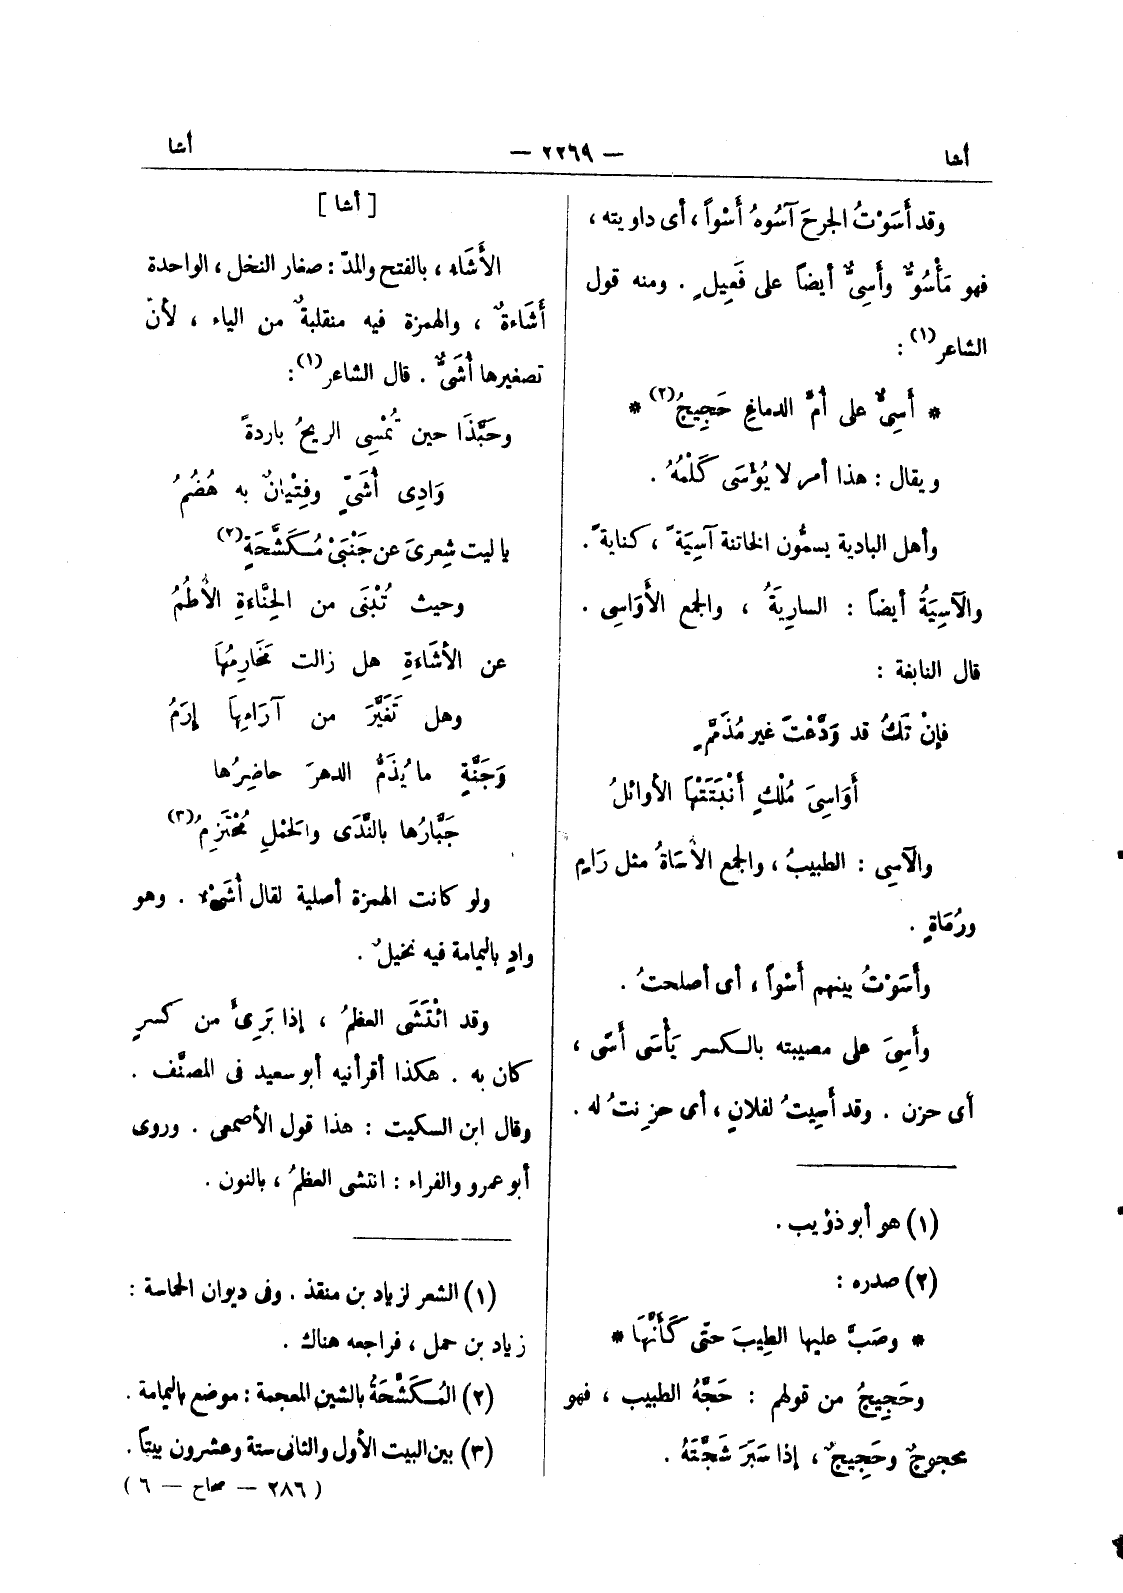 أشا — ٢٢٦٩ — أشا
وقد أَسَوْتُ الجرحَ آسُوهُ أَسْواً ، أى داويته ،
فهو مَأْسُوٌّ وأَسِىٌّ أيضاً على فَعِيلٍ . ومنه قول
الشاعر(١) :
* أَسِىٌّ على أُمِّ الدماغِ حَجِيجُ(٢) *
ويقال : هذا أمر لا يُؤْسَى كَلْمُهُ .
وأهل البادية يسمُّون الخاتنة آسِيَةً ، كنايةً .
والآسِيَةُ أيضاً : السارِيَةُ ، والجمع الأَوَاسِى .
قال النابغة :
فإنْ تَكُ قد وَدَّعْتَ غير مُذَمَّمٍ
أَوَاسِىَ مُلْكٍ أَثْبَتَتْهَا الأوائلُ
والآسِى : الطبيبُ ، والجمع الأُسَاةُ مثل رَامٍ
ورُمَاةٍ .
وأَسَوْتُ بينهم أَسْواً ، أى أصلحتُ .
وأَسِىَ على مصيبته بالكسر يَأْسَى أَسًى ،
أى حزن . وقد أَسِيتُ لفلانٍ ، أى حزِنتُ له .
(١) هو أبو ذؤيب .
(٢) صدره :
* وصَبَّ عليها الطِيبَ حتّى كَأَنَّهَا *
وحَجِيجُ من قولهم : حَجَّهُ الطبيب ، فهو
محجوجٌ وحَجِيجٌ ، إذا سَبَرَ شَجَّتَهُ .
[ أشا ]
الأَشَاءُ ، بالفتح والمدّ : صغار النخل ، الواحدة
أَشَاءةٌ ، والهمزة فيه منقلبةٌ من الياء ، لأنّ
تصغيرها أُشَىٌّ . قال الشاعر(١) :
وحَبَّذَا حين تُمْسِى الريحُ باردةً
وَادِى أُشَىٍّ وفِتْيَانٌ به هُضُمُ
ياليت شِعرِىَ عن جَنْبَىْ مُكَشَّحَةٍ(٢)
وحيث تُبْنَى من الحِنَّاءَةِ الأُطُمُ
عن الأشَاءَةِ هل زالت مَخَارِمُهَا
وهل تَغَيَّرَ من آرَامِهَا إرَمُ
وَجَنَّةٍ ما يُذَمُّ الدهرَ حاضِرُها
جَبَّارُها بالنَّدَى والحَمْلِ مُحْتَزِمُ(٣)
ولو كانت الهمزة أصلية لقال أُشَىْءٌ . وهو
وادٍ باليمامة فيه نخيلٌ .
وقد ائْتَشَى العظمُ ، إذا بَرِئَ من كسرٍ
كان به . هكذا أقرأنيه أبو سعيد فى المصنَّف .
وقال ابن السكيت : هذا قول الأصمعى . وروى
أبو عمرو والفراء : انتشى العظمُ ، بالنون .
(١) الشعر لزياد بن منقذ . وفى ديوان الحماسة :
زياد بن حمل ، فراجعه هناك .
(٢) المُكَشَّحَةُ بالشين المعجمة : موضع باليمامة .
(٣) بين البيت الأول والثانى ستة وعشرون بيتاً .
(٢٨٦ — صحاح — ٦)